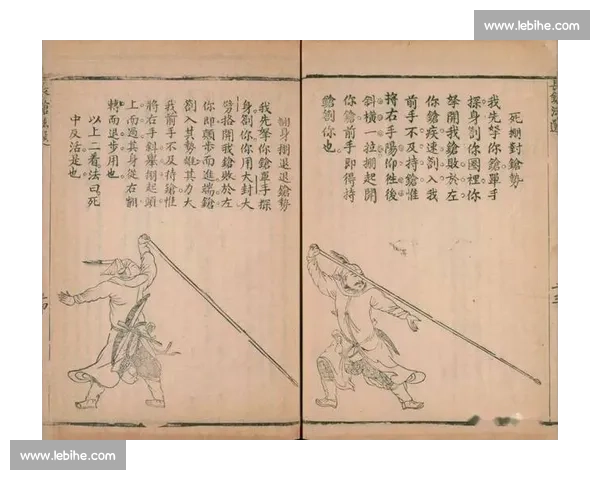 www.lebihe.com
死掤對鎗勢
我先拏你鎗單手
探身劄你圈裡你
拏開我鎗敗於左
你鎗疾速劄入我
前手不及持鎗惟
將右手陽仰徃後
斜橫一拉掤起開
你鎗前手即得持
鎗劄你也
翻身掤退退鎗勢
我先拏你鎗單手探
身劄你你用大封大
劈搭開我鎗敗於左
你即顛步而進端鎗
劄入其勢雖其力大
我前手不及持鎗惟
將右手斜舉掤起頭
上而過其身從右翻
轉而退步用也
以上二着法曰死
中反活是也
十四
www.lebihe.com